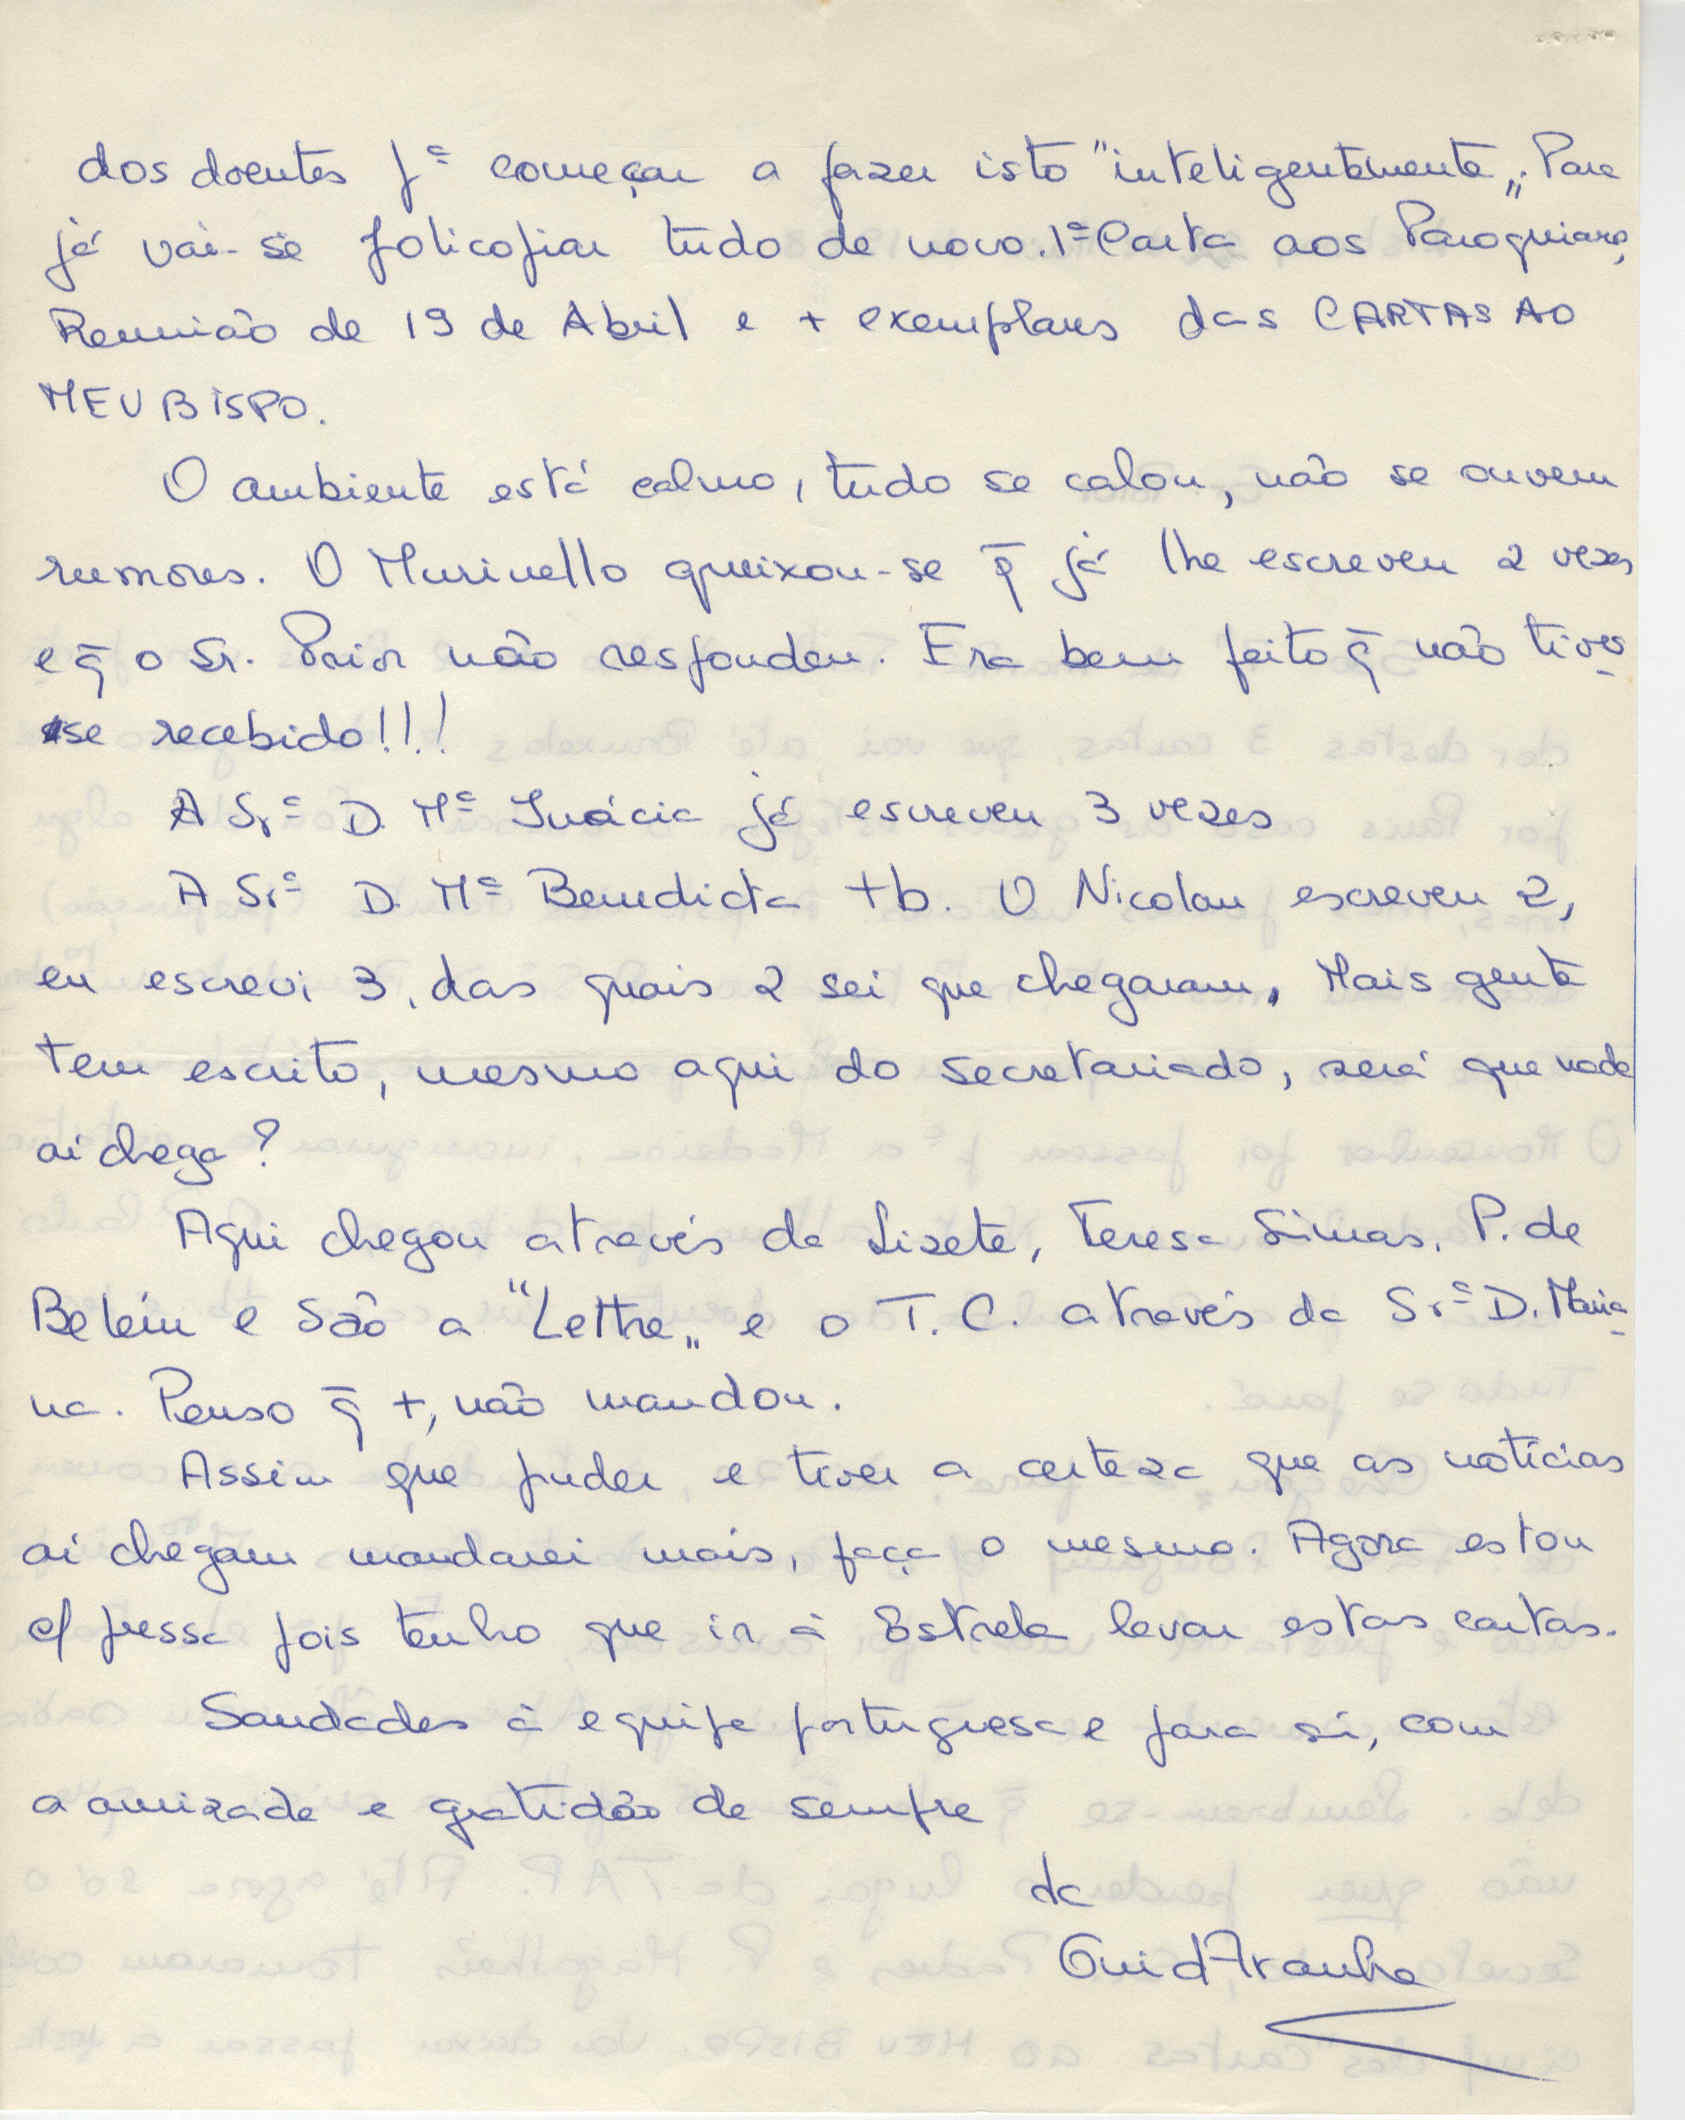 dos doentes pª começar a fazer isto "inteligentemente". Para
já vai-se policopiar tudo de novo. 1ª Carta aos Paroquianos,
Reunião de 19 de Abril e + exemplares das CARTAS AO
MEU BISPO.
O ambiente está calmo, tudo se calou, não se ouvem
rumores. O Murinello queixou-se q̄ já lhe escreveu 2 vezes
e q̄ o Sr. Prior não respondeu. Era bem feito q̄ não tives-
se recebido!!!
A Srª D. Mª Inácia já escreveu 3 vezes
A Srª D. Mª Benedicta tb. O Nicolau escreveu 2,
eu escrevi 3, das quais 2 sei que chegaram. Mais gente
tem escrito, mesmo aqui do secretariado, será que nada
aí chega?
Aqui chegou através da Lizete, Teresa Simas, P. de
Belém e São a "Lettre" e o T. C. através da Srª D. Maria-
na. Penso q̄ +, não mandou.
Assim que puder e tiver a certeza que as notícias
aí chegam mandarei mais, faça o mesmo. Agora estou
c/ pressa pois tenho que ir à Estrela levar estas cartas.
Saudades à equipe portuguesa e para si, com
a amizade e gratidão de sempre
da
Guid Aranha